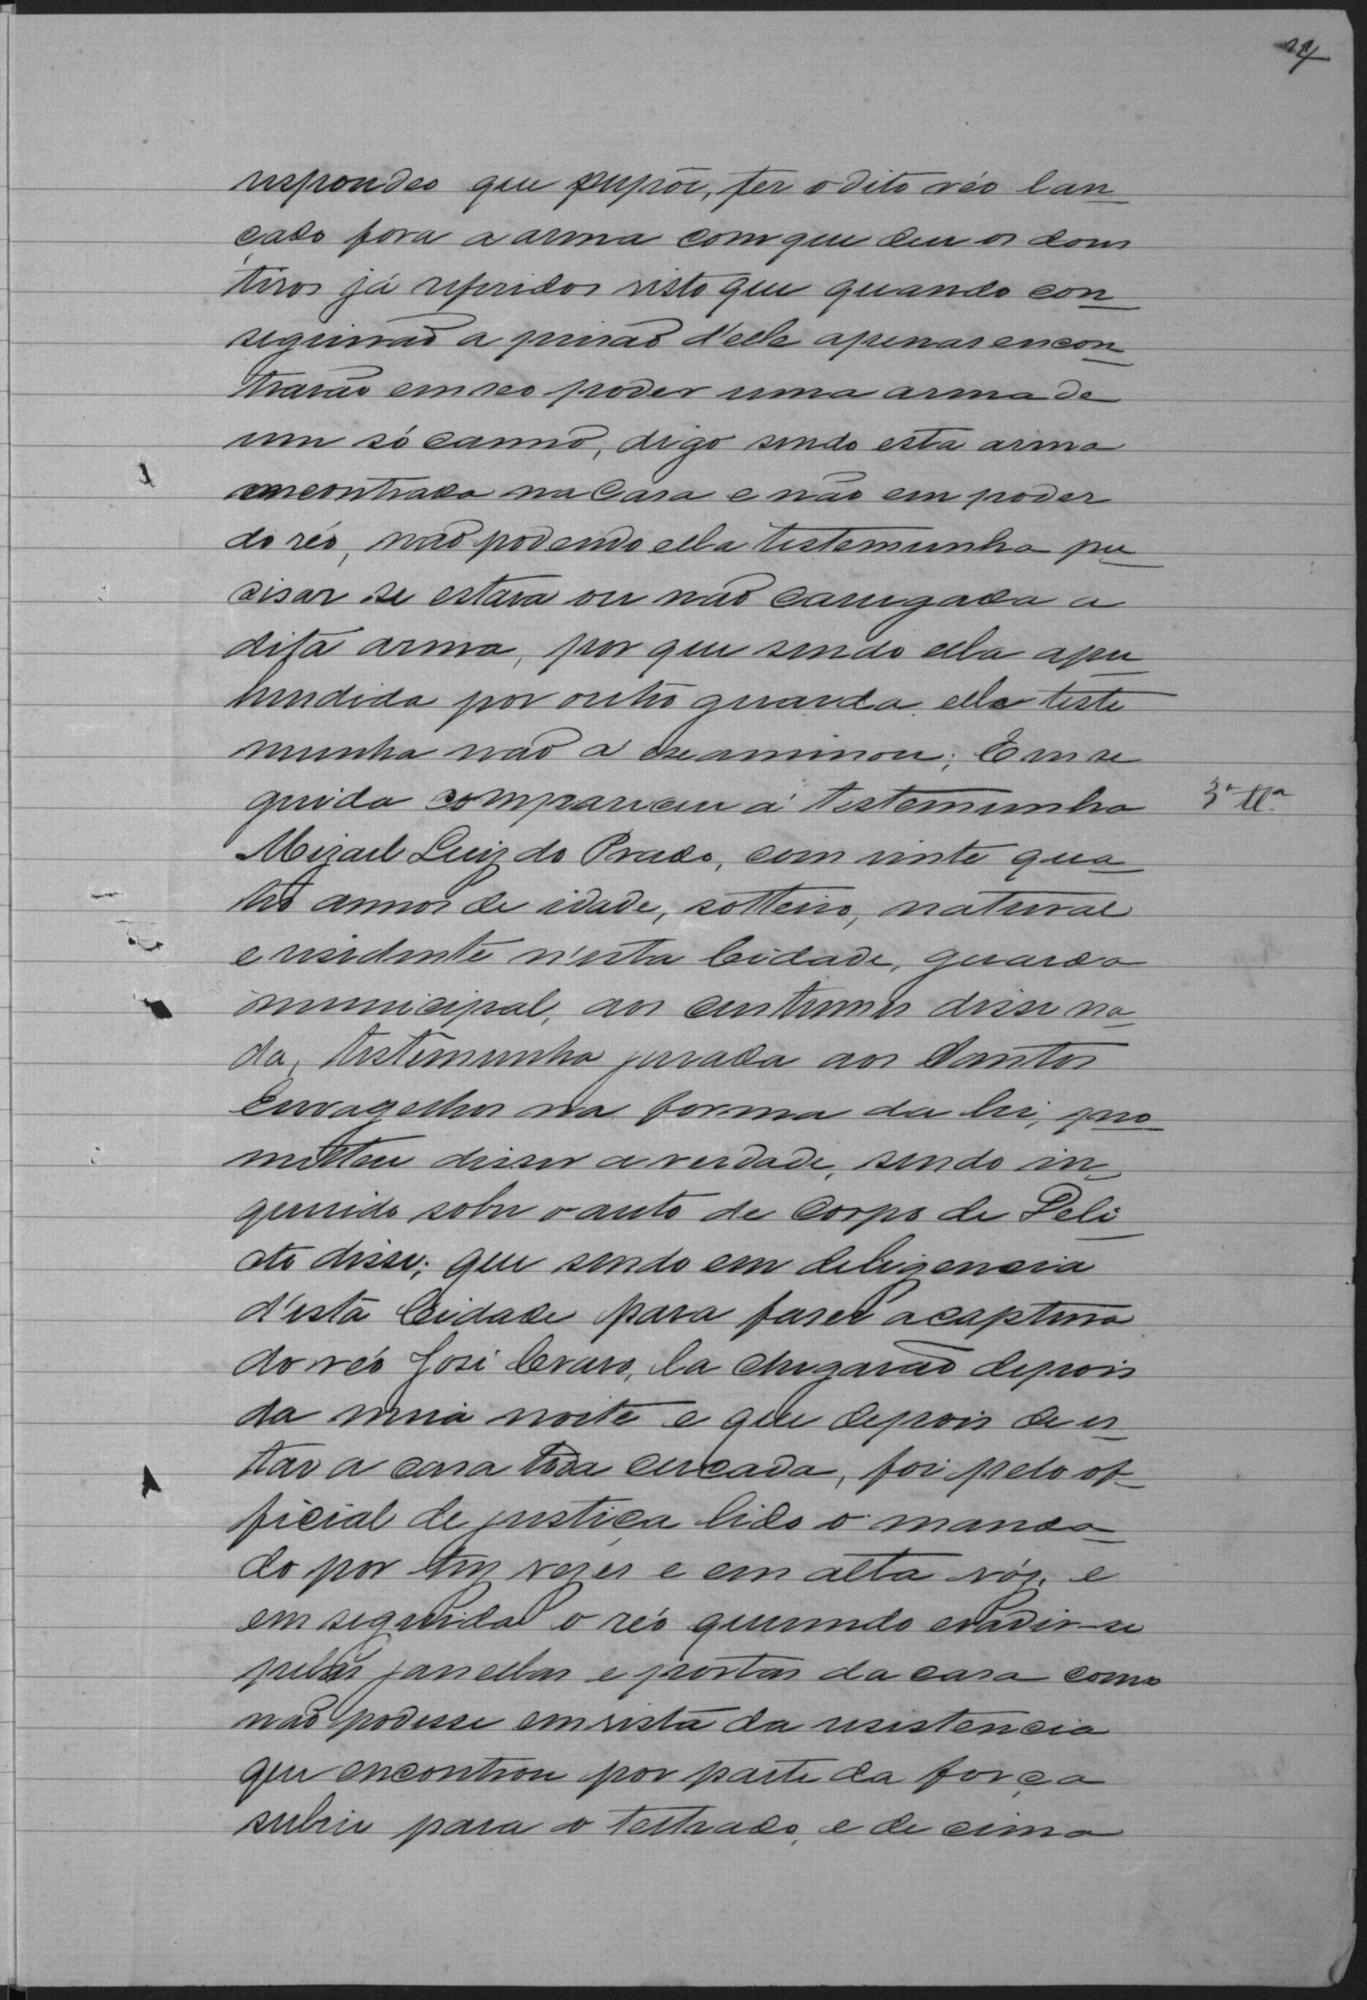 respondeo que supõe, ter o dito réo lan
çado fora a arma com que deu os dous
tiros já referidos visto que quando con
seguirão a prisão d'elle apenas encon
trarão em seo poder uma arma de
um só canno, digo sendo esta arma
encontrada na Casa e não em poder
do réo, não podendo ella testemunha pre
cisar se estava ou não carregada a
dita arma, por que sendo ella apre
hendida por outro guarda ella teste
munha não a examinou; Em se
guida compareceu a testemunha
3ª Tª
Mizael Luiz do Prado, com vinte qua
tro annos de idade, solteiro, natural
e residente n'esta Cidade, guarda
municipal, aos custumes disse na
da, testemunha jurada aos Santos
Envagelhos na forma da lei, pro
metteu disser a verdade, sendo in
querido sobre o auto de Corpo de Deli
cto disse; que sendo em deligencia
d'esta Cidade para faser a captura
do réo José Cravo, la chegarão depois
da meia noite e que depois de es
tar a casa toda cercada, foi pelo of
ficial de justiça lido o manda
do por trez vezes e em alta vóz, e
em seguida o réo querendo evadir-se
pelas janellas e portas da casa como
não podesse em vista da resistencia
que encontrou por parte da força
subiu para o telhado, e de cima